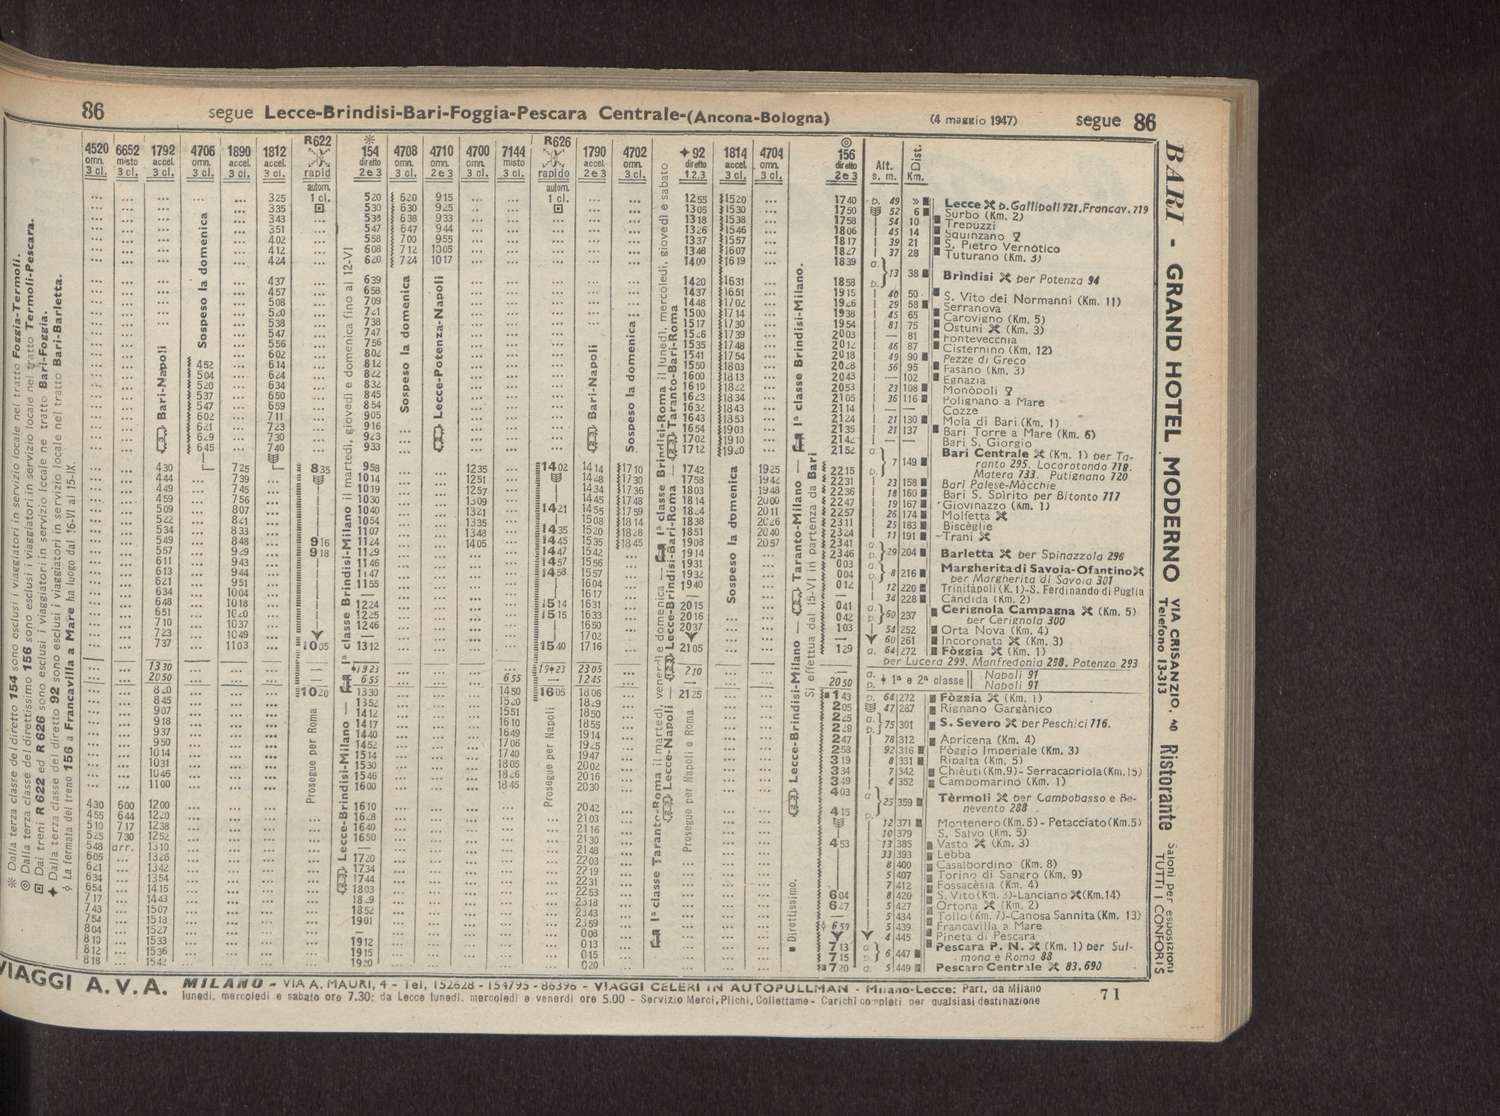 86 segue Lecce-Brindisi-Bari-Foggia-Pescara Centrale-(Ancona-Bologna) (4 maggio 1947) segue 86
4520 6652 1792 4706 1890 1812 R622 154 4708 4710 4700 7144 R626 1790 4702 92 1814 4704 156 Alt. Dist.
omn. misto accel. omn. accel. accel. rapid diretto omn. omn. omn. misto rapido accel. omn. diretto accel. omn. diretto s. m. Km.
3 cl. 3 cl. 3 cl. 3 cl. 3 cl. 3 cl. autom. 1 cl. 2 e 3 3 cl. 2 e 3 3 cl. 3 cl. autom. 1 cl. 2 e 3 3 cl. 1.2.3 3 cl. 3 cl. 2 e 3
325 520 620 915 1255 1520 1740 p. 49 » Lecce p. Gallipoli 721. Francav. 719
335 530 630 925 1305 1530 1750 52 6 Surbo (Km. 2)
343 538 638 933 1318 1538 1758 54 10 Trepuzzi
351 547 647 944 1326 1546 1806 45 14 Squinzano
402 558 700 955 1337 1557 1817 39 21 S. Pietro Vernòtico
412 608 712 1005 1348 1607 1827 37 28 Tuturano (Km. 3)
424 620 724 1017 1400 1619 1839 a.
437 639 1420 1631 1858 p. 13 38 Brindisi per Potenza 94
457 658 1437 1651 1915 40 50 S. Vito dei Normanni (Km. 11)
508 709 1448 1702 1926 29 58 Serranova
520 721 1500 1714 1938 45 65 Carovigno (Km. 5)
538 738 1517 1730 1954 81 75 Ostuni (Km. 3)
547 747 1526 1739 2003 — 81 Fontevecchia
556 756 1535 1748 2012 46 87 Cisternino (Km. 12)
602 802 1541 1754 2018 49 90 Pezze di Greco
452 614 812 1550 1803 2028 56 95 Fasano (Km. 3)
504 624 822 1600 1813 2043 — 102 Egnazia
520 634 832 1610 1822 2053 23 108 Monòpoli
537 650 845 1623 1834 2105 36 116 Polignano a Mare
547 659 854 1632 1843 2114 — — Cozze
602 711 905 1643 1853 2124 21 130 Mola di Bari (Km. 1)
621 723 916 1654 1903 2135 21 137 Bari Torre a Mare (Km. 6)
629 730 923 1702 1910 2142 — — Bari S. Giorgio
645 740 933 1712 1920 2152 a. Bari Centrale (Km. 1) per Ta-
430 725 835 958 1235 1402 1414 1710 1742 1925 2215 p. 7 149 ranto 295. Locorotondo 718.
Matera 733. Putignano 720
444 739 1014 1251 1428 1730 1758 1942 2231 23 158 Bari Palese-Màcchie
449 745 1019 1257 1434 1736 1803 1948 2236 18 160 Bari S. Spirito per Bitonto 717
459 756 1030 1309 1445 1748 1814 2000 2247 19 167 Giovinazzo (Km. 1)
509 807 1040 1321 1421 1455 1759 1824 2011 2257 26 174 Molfetta
522 821 1054 1335 1508 1814 1838 2026 2311 25 183 Biscèglie
534 833 1107 1348 1435 1520 1828 1851 2040 2324 11 191 Trani
549 848 916 1124 1405 1445 1535 1845 1908 2057 2341 a.
557 929 918 1129 1447 1542 1914 2346 p. 29 204 Barletta per Spinazzola 296
611 943 1146 1457 1556 1931 003 a. Margherita di Savoia-Ofantino
613 944 1147 1458 1557 1932 004 p. 8 216 per Margherita di Savoia 301
621 951 1155 1604 1940 012 12 220 Trinitàpoli (K.1)-S. Ferdinando di Puglia
634 1004 — 1617 34 228 Càndida (Km. 2)
648 1018 1224 1514 1631 2015 041 a. Cerignola Campagna (Km. 5)
651 1020 1225 1515 1633 2016 042 p. 60 237 per Cerignola 300
710 1037 1246 1650 2037 103 54 252 Orta Nova (Km. 4)
723 1049 — 1702 60 261 Incoronata (Km. 3)
737 1103 1005 1312 1540 1716 2105 129 a. 64 272 Fòggia (Km. 1)
per Lucera 299, Manfredonia 298, Potenza 293
1330 1823 1923 2305 a. 1ª e 2ª classe Napoli 91
2050 655 655 1245 710 2050 p. Napoli 91
820 1020 1330 1450 1605 1806 2125 143 p. 64 272 Fòggia (Km. 1)
845 1352 1520 1829 205 47 287 Rignano Gargànico
907 1412 1551 1850 225 a.
918 1417 1610 1855 228 p. 75 301 S. Severo per Peschici 716.
937 1440 1649 1914 247 78 312 Apricena (Km. 4)
950 1452 1706 1925 258 92 316 Pòggio Imperiale (Km. 3)
1014 1514 1740 1947 319 8 331 Ripalta (Km. 5)
1031 1530 1805 2002 334 7 342 Chièuti (Km.9)- Serracapriola (Km.15)
1046 1546 1826 2016 349 4 352 Campomarino (Km. 1)
1100 1600 1845 2030 403 a. Tèrmoli per Campobasso e Be-
430 600 1200 1610 2042 415 p. 25 359 nevento 288
455 644 1220 1628 2103 12 371 Montenero (Km.6) - Petacciato (Km.5)
510 717 1238 1640 2116 10 379 S. Salvo (Km. 5)
525 730 1252 1650 2130 453 13 385 Vasto (Km. 3)
548 arr. 1310 — 2148 33 393 Lebba
605 1326 1720 2203 8 400 Casalbordino (Km. 8)
621 1342 1734 2219 5 407 Torino di Sangro (Km. 9)
634 1354 1744 2231 7 412 Fossacèsia (Km. 4)
654 1415 1803 2253 604 8 420 S. Vito (Km. 3)-Lanciano (Km.14)
717 1443 1829 2318 627 5 427 Ortona (Km. 2)
743 1507 1852 2343 — 5 434 Tollo (Km. 7)-Canosa Sannita (Km. 13)
754 1518 1901 2359 659 5 439 Francavilla a Mare
804 1527 — 008 4 445 Pineta di Pescara
810 1533 1912 013 713 a. Pescara P. N. (Km. 1) per Sul-
812 1536 1915 015 715 p. 6 447 mona e Roma 88
818 1542 1920 020 720 a. 5 449 Pescara Centrale 83.690
Bari-Napoli
Sospeso la domenica
Prosegue per Roma
Lecce-Brindisi-Milano — 1ª classe Brindisi-Milano il martedì, giovedì e domenica fino al 12-VI
Sospeso la domenica
Lecce-Potenza-Napoli
Prosegue per Napoli
Bari-Napoli
Sospeso la domenica
1ª classe Taranto-Roma il martedì, venerdì e domenica — 1ª classe Brindisi-Roma il lunedì, mercoledì, giovedì e sabato
Lecce-Napoli — Lecce-Brindisi-Bari-Roma — Taranto-Bari-Roma
Prosegue per Napoli e Roma
Sospeso la domenica
Direttissimo.
Lecce-Brindisi-Milano — Taranto-Milano — 1ª classe Brindisi-Milano.
Si effettua dal 15-VI in partenza da Bari
Dalla terza classe del diretto 154 sono esclusi i viaggiatori in servizio locale nel tratto Foggia-Termoli.
Dalla terza classe del direttissimo 156 sono esclusi i viaggiatori in servizio locale nel tratto Termoli-Pescara.
Dai treni R 622 ed R 626 sono esclusi i viaggiatori in servizio locale nel tratto Bari-Foggia.
Dalla terza classe del diretto 92 sono esclusi i viaggiatori in servizio locale nel tratto Bari-Barletta.
La fermata del treno 156 a Francavilla a Mare ha luogo dal 16-VI al 15-IX.
BARI - GRAND HOTEL MODERNO VIA CRISANZIO, 40 Telefono 13-313 Ristorante Saloni per esposizioni TUTTI I CONFORTS
VIAGGI A.V.A. MILANO - VIA A. MAURI, 4 - Tel. 152628 - 154795 - 86396 - VIAGGI CELERI IN AUTOPULLMAN - Milano-Lecce: Part. da Milano
lunedì, mercoledì e sabato ore 7.30; da Lecce lunedì, mercoledì e venerdì ore 5.00 - Servizio Merci, Plichi, Collettame - Carichi completi per qualsiasi destinazione
71